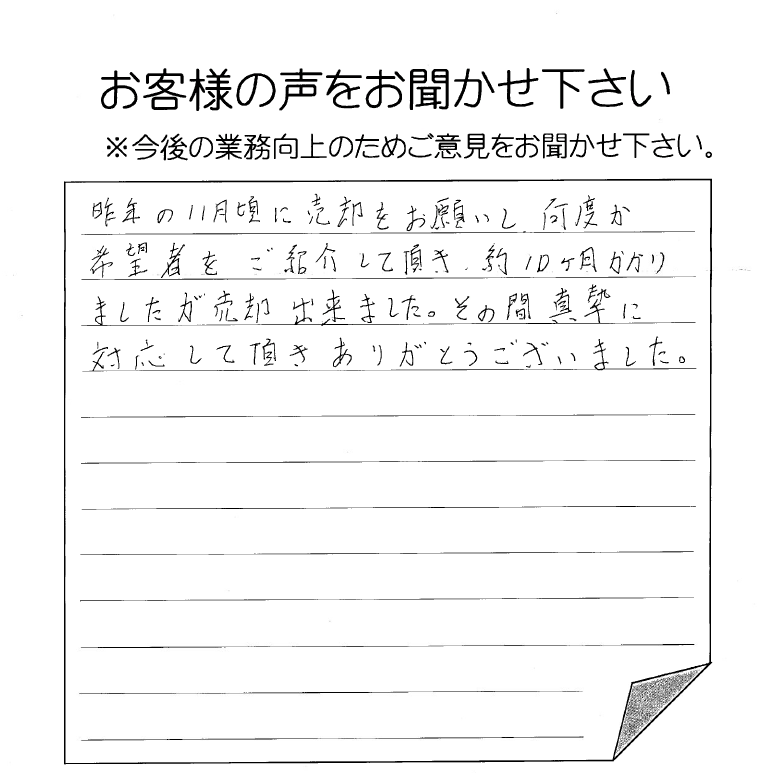 お客様の声をお聞かせ下さい
※今後の業務向上のためご意見をお聞かせ下さい。
昨年の11月頃に売却をお願いし、何度か
希望者をご紹介して頂き、約10ヶ月かかり
ましたが売却出来ました。その間真摯に
対応して頂きありがとうございました。